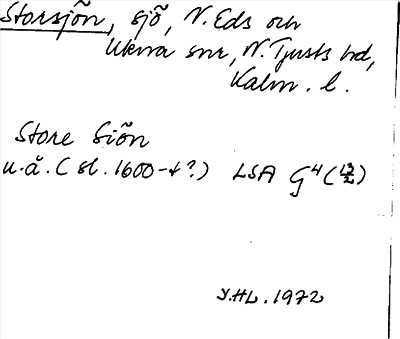 Storsjõn, sjõ, N. Eds och
Ukna snr, N. Tjusts hd,
Kalm. l.
Store Siõn
u.å. (sl. 1600-t?) LSA G4 (13/2)
Y.HL. 1972